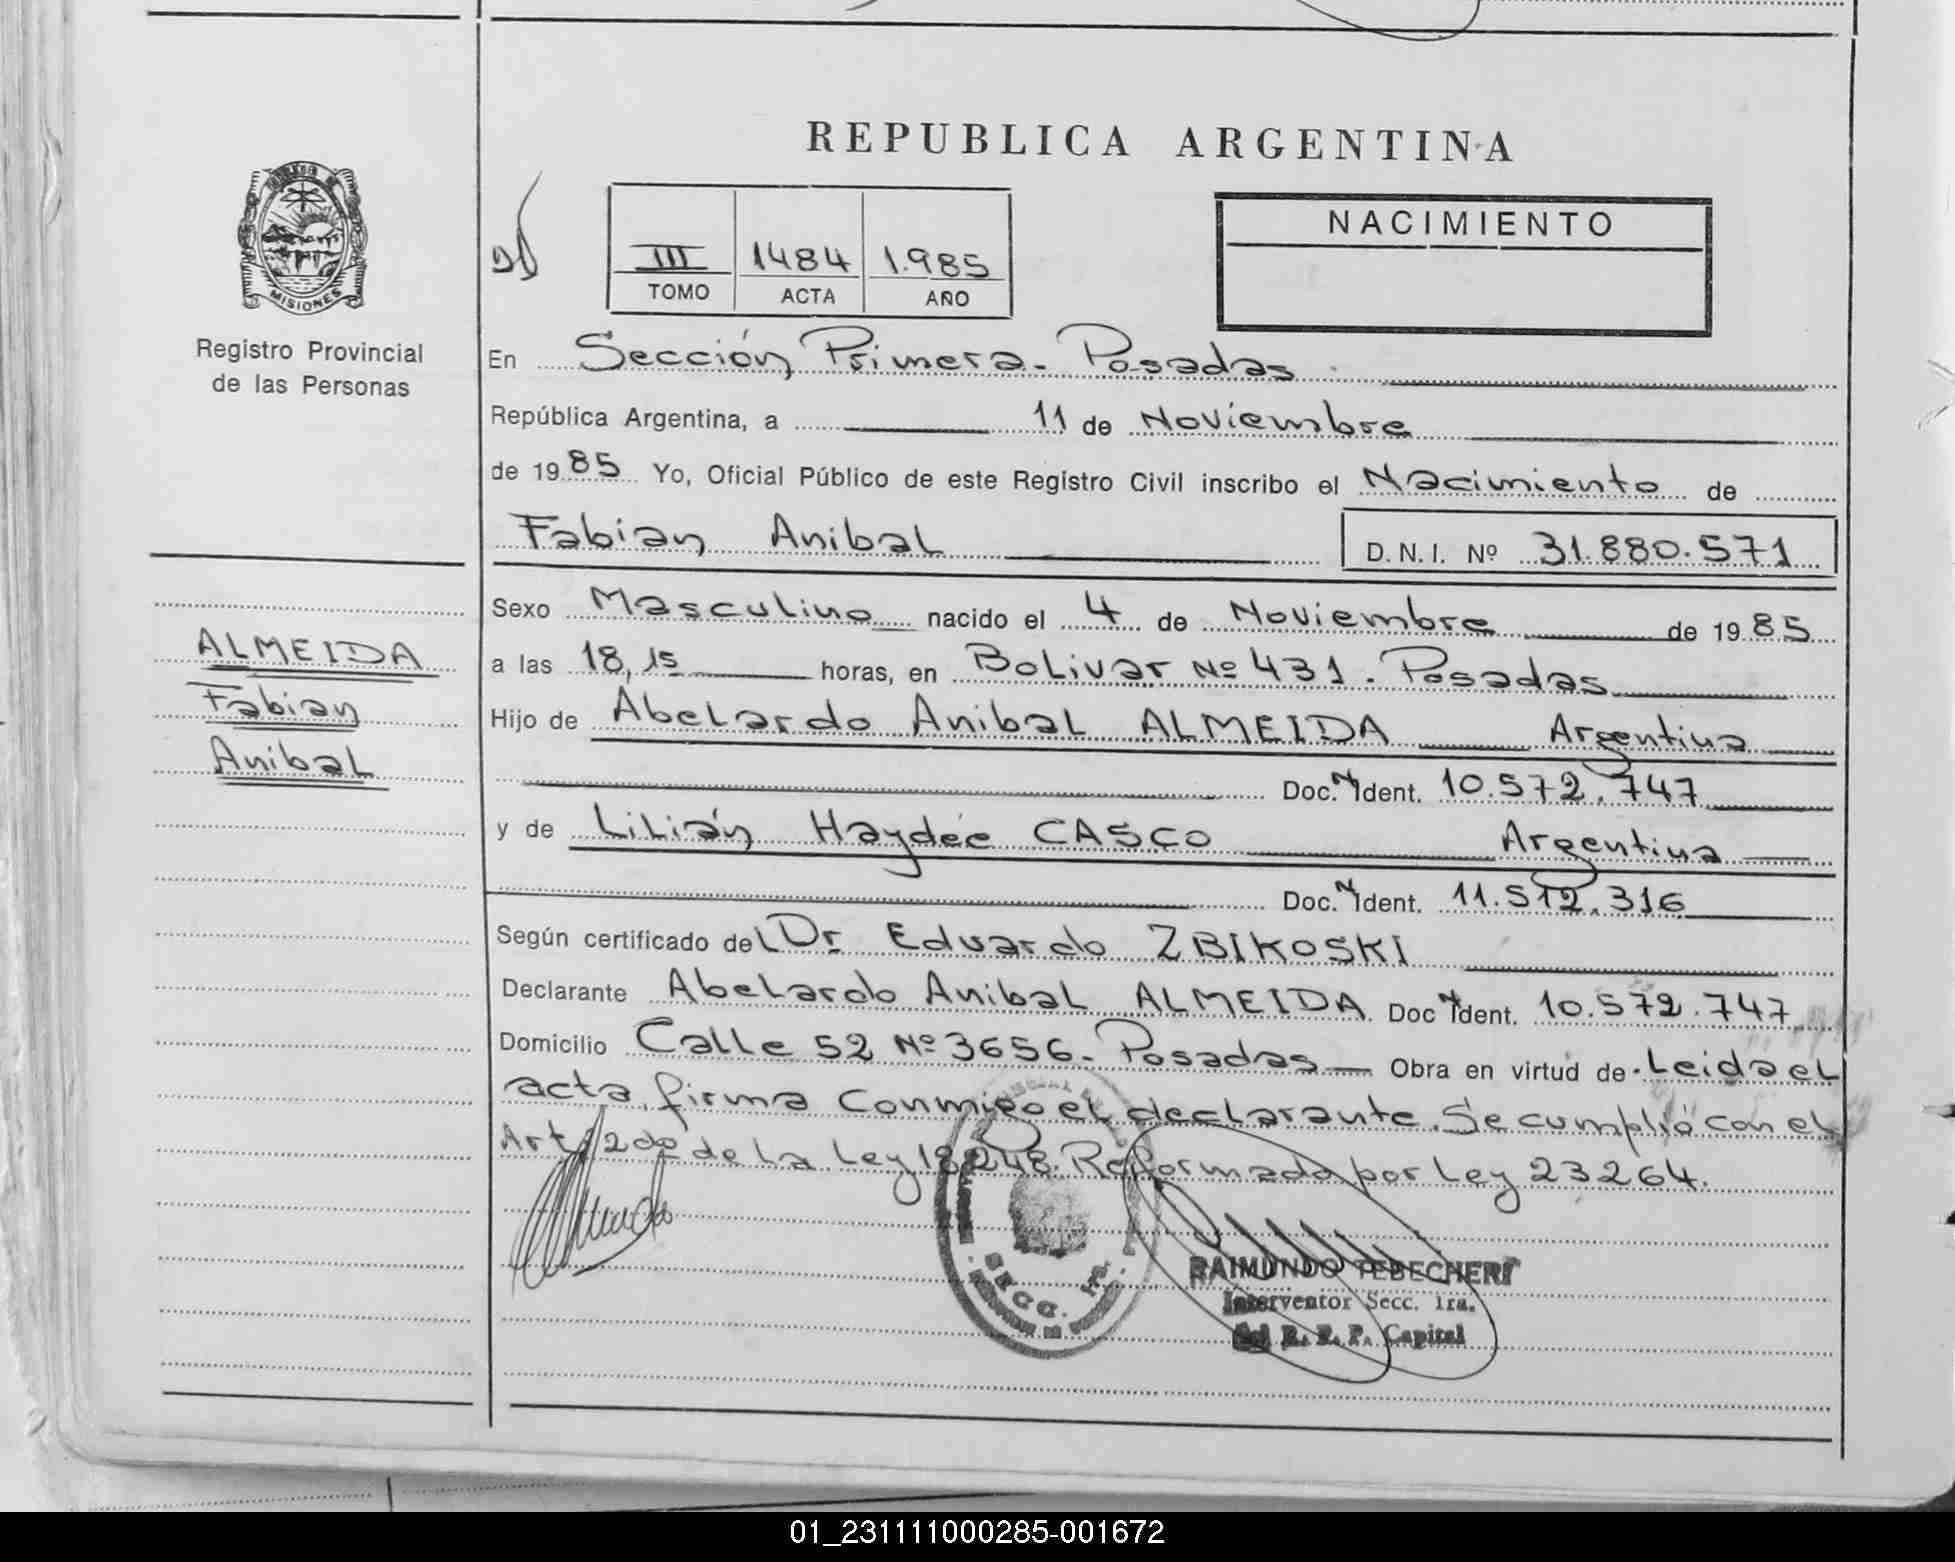 REPUBLICA ARGENTINA
MISIONES
Registro Provincial
de las Personas
III 1484 1.985
TOMO ACTA AÑO
NACIMIENTO
En Sección Primera- Posadas
República Argentina, a 11 de Noviembre
de 19 85 Yo, Oficial Público de este Registro Civil inscribo el Nacimiento de
Fabian Anibal D.N.I. Nº 31.880.571
Sexo Masculino nacido el 4 de Noviembre de 19 85
ALMEIDA
Fabian
Anibal
a las 18,15 horas, en Bolivar Nº 431. Posadas
Hijo de Abelardo Anibal ALMEIDA Argentina
Doc. N Ident. 10.572.747
y de Lilián Haydée CASCO Argentina
Doc. N Ident. 11.512.316
Según certificado del Dr. Eduardo ZBIKOSKI
Declarante Abelardo Anibal ALMEIDA Doc N Ident. 10.572.747
Domicilio Calle 52 Nº 3656- Posadas— Obra en virtud de Leida el
acta, firma conmigo el declarante. Se cumplió con el
Art 2do de la Ley 18248. Reformado por Ley 23264.
SECC. 1ra.
RAIMUNDO TEBECHERI
Interventor Secc. 1ra.
del R. P. P. Capital
01_231111000285-001672